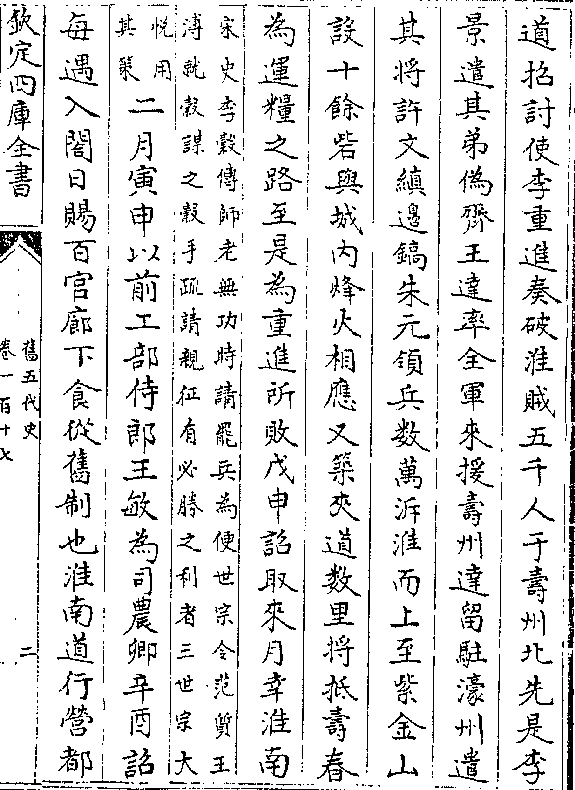 道招討使李重進奏破淮賊五千人于壽州北先是李
景遣其弟偽齊王達率全軍來援壽州達留駐濠州遣
其將許文縝邊鎬朱元領兵數萬泝淮而上至紫金山
設十餘砦與城內烽火相應又築夾道数里將抵壽春
為運糧之路至是為重進所敗戊申詔取來月幸淮南
宋史李穀傳師老無功時請罷兵為便世宗令范質王
溥就穀謀之穀手疏請親征有必勝之利者三世宗大
悅用
其策
二月寅申以前工部侍郎王敏為司農卿辛酉詔
每遇入閤日賜百官廊下食從舊制也淮南道行營都
欽定四庫全書
舊五代史
卷一百十七
二